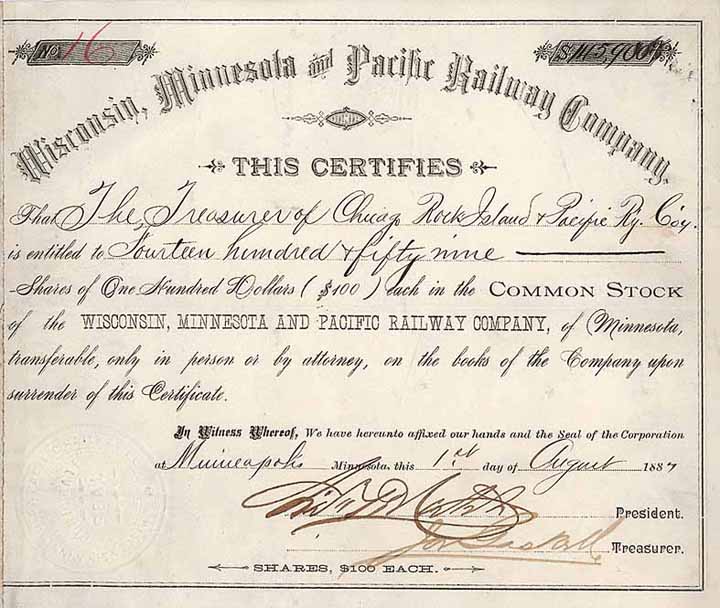 No. 16
$145,900
Wisconsin, Minnesota and Pacific Railway Company.
THIS CERTIFIES
That The Treasurer of Chicag Rock Island & Pacific Ry. Coy.
is entitled to Fourteen hundred & fifty nine
Shares of One Hundred Dollars ($100) each in the COMMON STOCK
of the WISCONSIN, MINNESOTA AND PACIFIC RAILWAY COMPANY, of Minnesota,
transferable, only in person or by attorney, on the books of the Company upon
surrender of this Certificate.
In Witness Whereof, We have hereunto affixed our hands and the Seal of the Corporation
at Minneapolis Minnesota, this 1st day of August 1887
President.
Treasurer.
SHARES, $100 EACH.